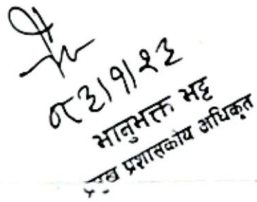 ०८२।१।२३
भानुभक्त भट्ट
प्रमुख प्रशासकीय अधिकृत